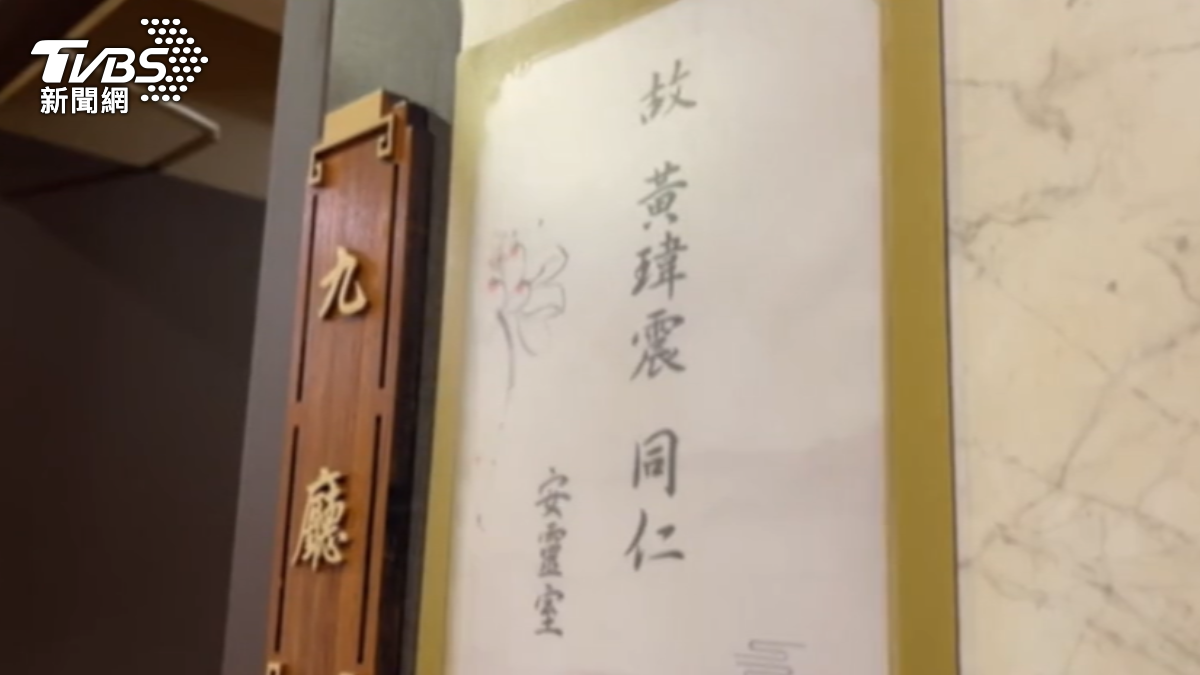 TVBS
新聞網
九廳
故 黃瑋震 同仁
安靈室